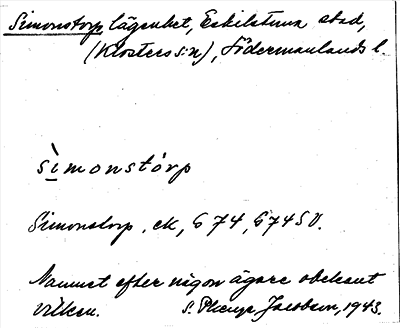 Simonstorp lägenhet, Eskilstuna stad,
(Klosters sn), Södermanlands l.
sìmonstórp
Simonstorp, ek, 674, 6745 V.
Namnet efter någon ägare obekant
vilken. S. Jacobson, 1943.